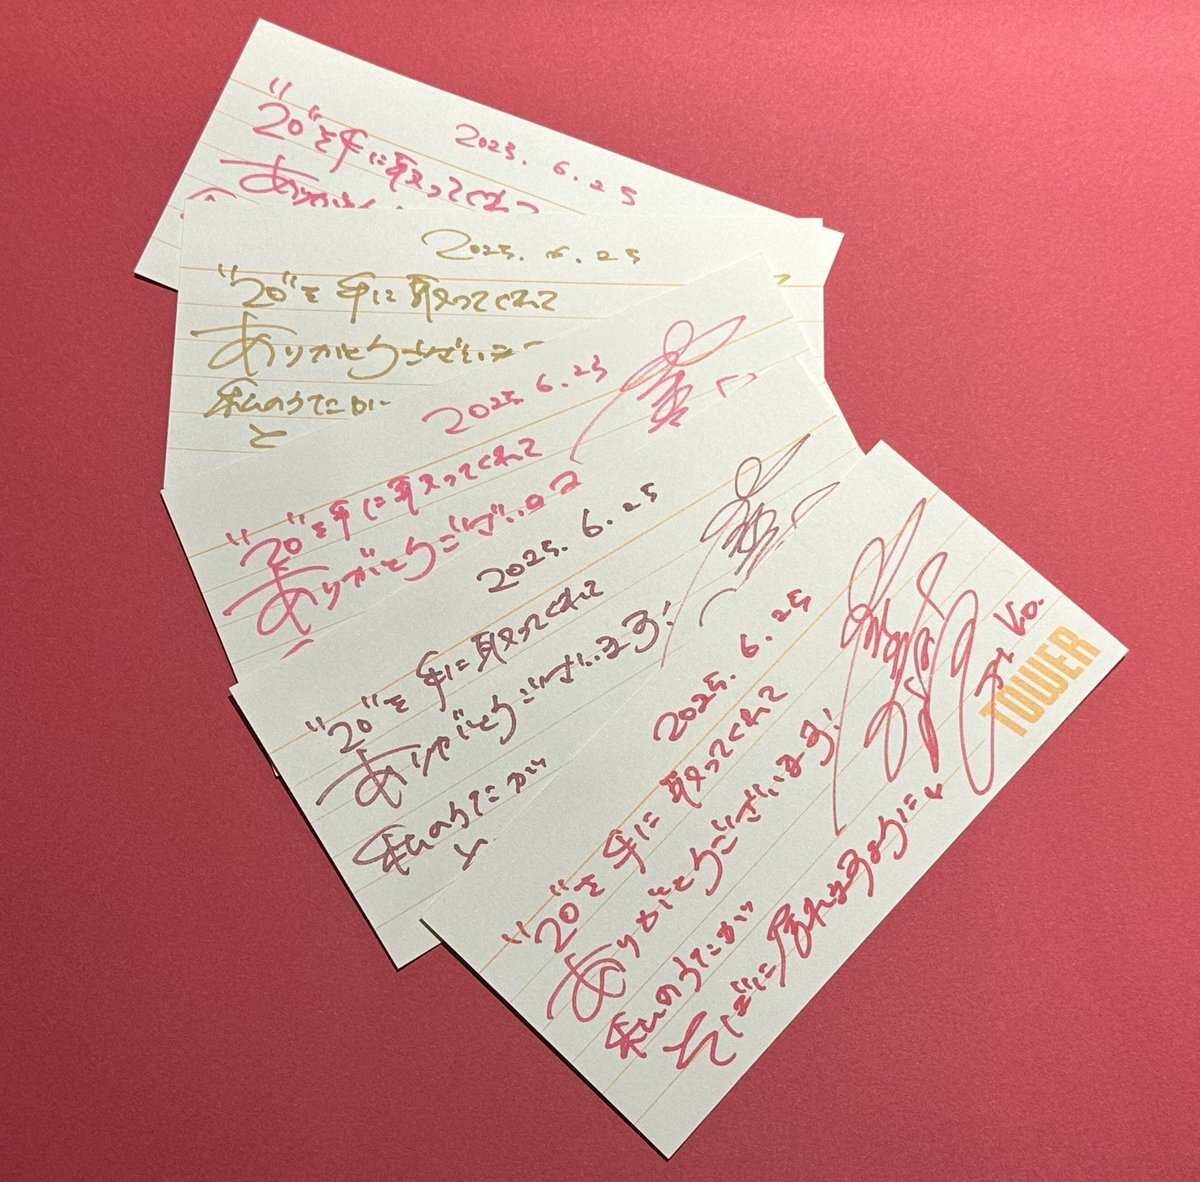 2025. 6. 25
"20"を手に取ってくれて
ありがとう
2025. 6. 25
"20"を手に取ってくれて
ありがとうございま
私のうたが
と
2025. 6. 25
"20"を手に取ってくれて
ありがとうございま
2025. 6. 25
"20"を手に取ってくれて
ありがとうございます!
私のうたが
と
2025. 6. 25
"20"を手に取ってくれて
ありがとうございます!
私のうたが
そばに居れますように
Vo.
TOWER